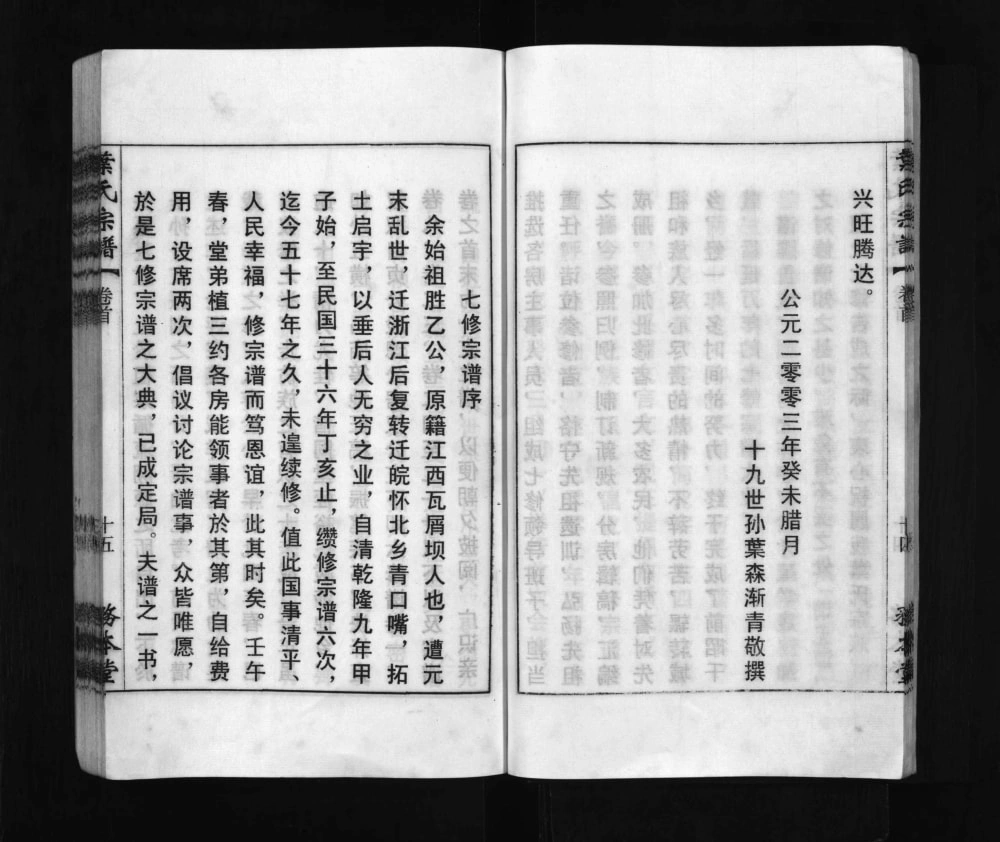 葉氏宗譜
卷首
十四
務本堂
兴旺腾达。
公元二零零三年癸未腊月
十九世孙葉森渐青敬撰
七修宗谱序
余始祖胜乙公，原籍江西瓦屑坝人也，遭元
末乱世，迁浙江后复转迁皖怀北乡青口嘴，一拓
土启宇，以垂后人无穷之业，自清乾隆九年甲
子始，至民国三十六年丁亥止，缵修宗谱六次，
迄今五十七年之久，未遑续修。值此国事清平、
人民幸福，修宗谱而笃恩谊，此其时矣。壬午
春，堂弟植三约各房能领事者於其第，自给费
用，设席两次，倡议讨论宗谱事，众皆唯愿，
於是七修宗谱之大典，已成定局。夫谱之一书，
葉氏宗譜
卷首
十五
務本堂